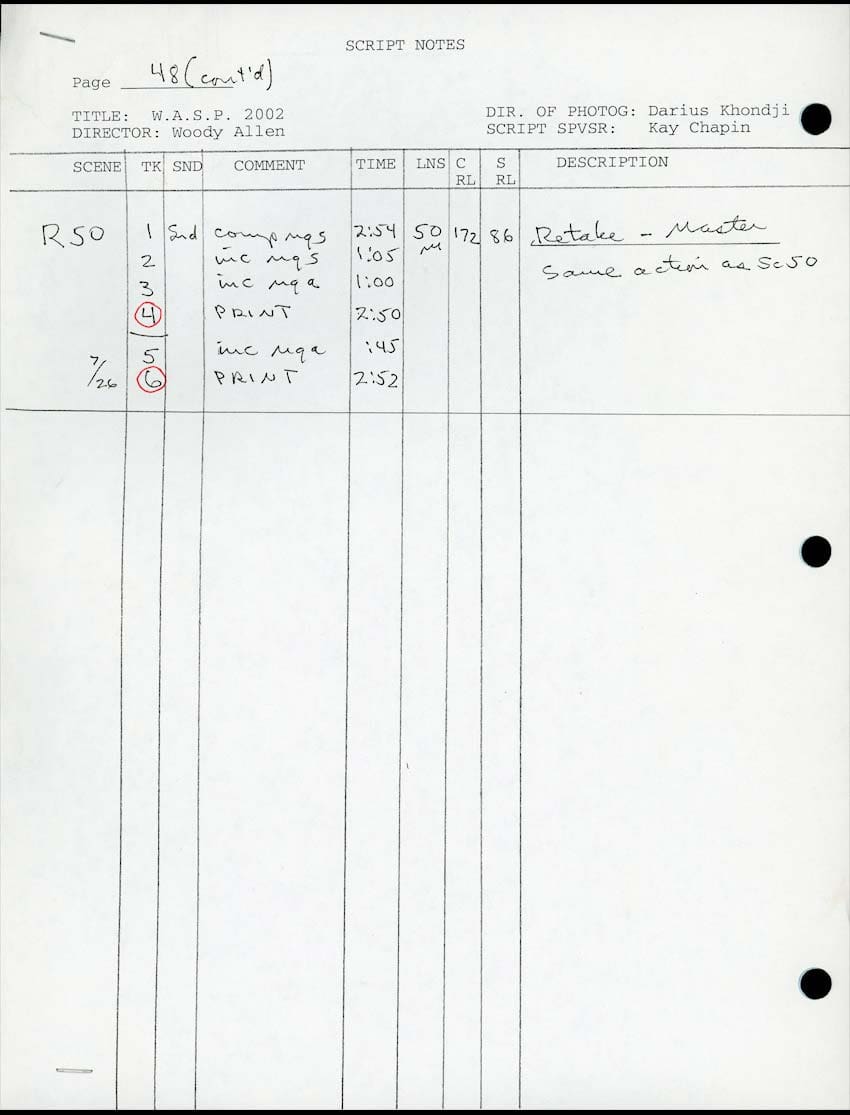 SCRIPT NOTES
Page 48 (cont'd)
TITLE: W.A.S.P. 2002 DIR. OF PHOTOG: Darius Khondji
DIRECTOR: Woody Allen SCRIPT SPVSR: Kay Chapin
SCENE TK SND COMMENT TIME LNS C RL S RL DESCRIPTION
R50 1 Snd comp ngs 2:54 50 M 172 86 Retake - Master
2 inc ngs 1:05 Same action as Sc 50
3 inc nga 1:00
4 PRINT 2:50
5 inc nga :45
7/26 6 PRINT 2:52